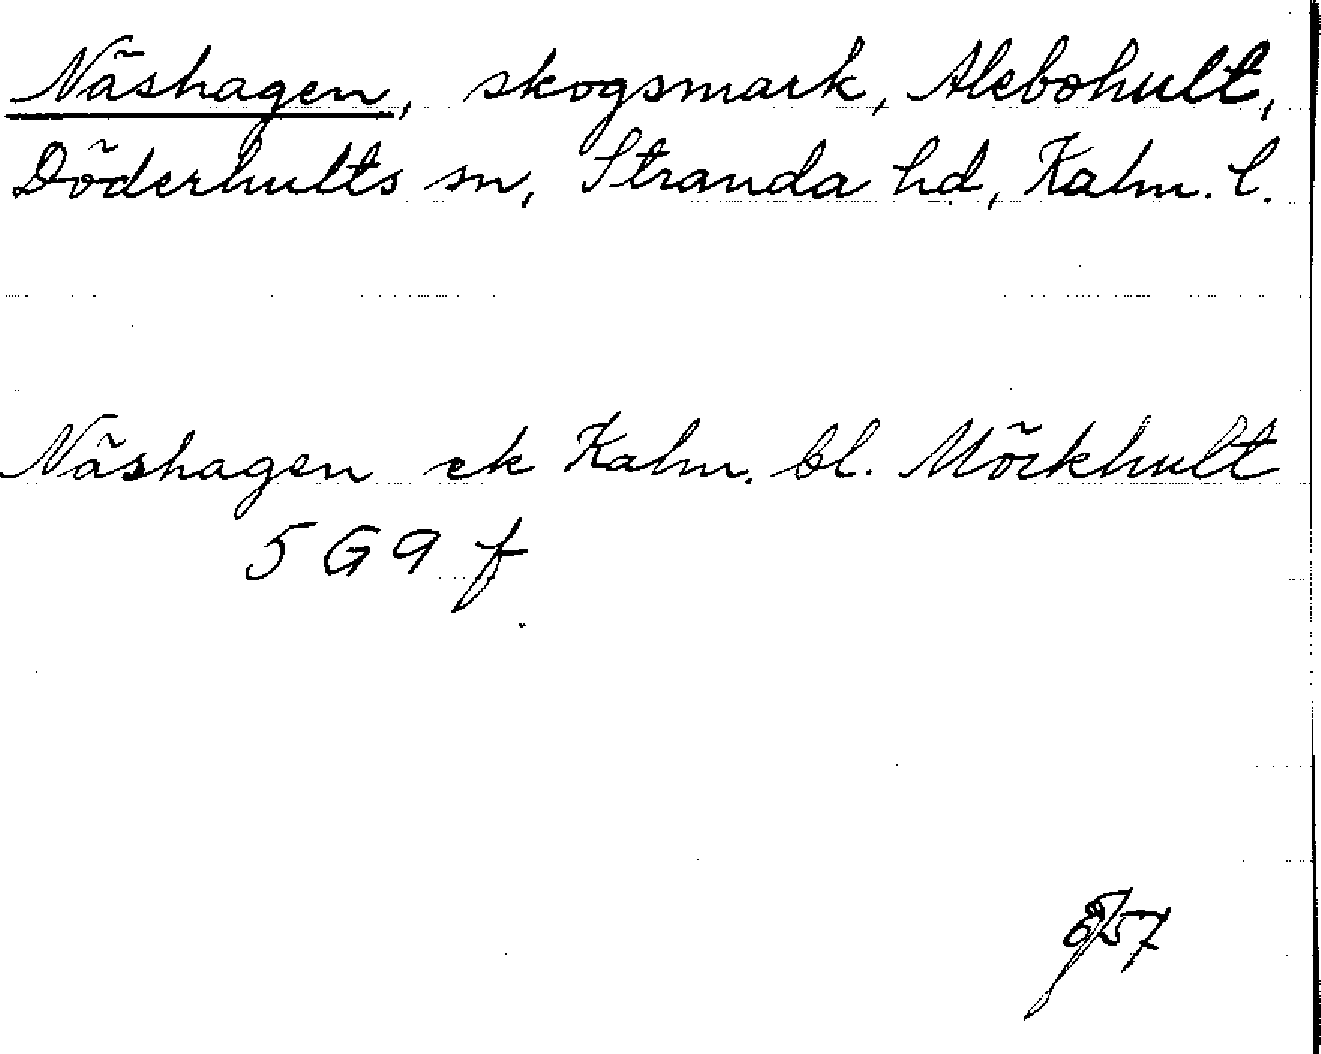 Näshagen, skogsmark, Alebohult,
Döderhults sn, Stranda hd, Kalm. l.
Näshagen ek Kalm. bl. Möckhult
5 G 9 f